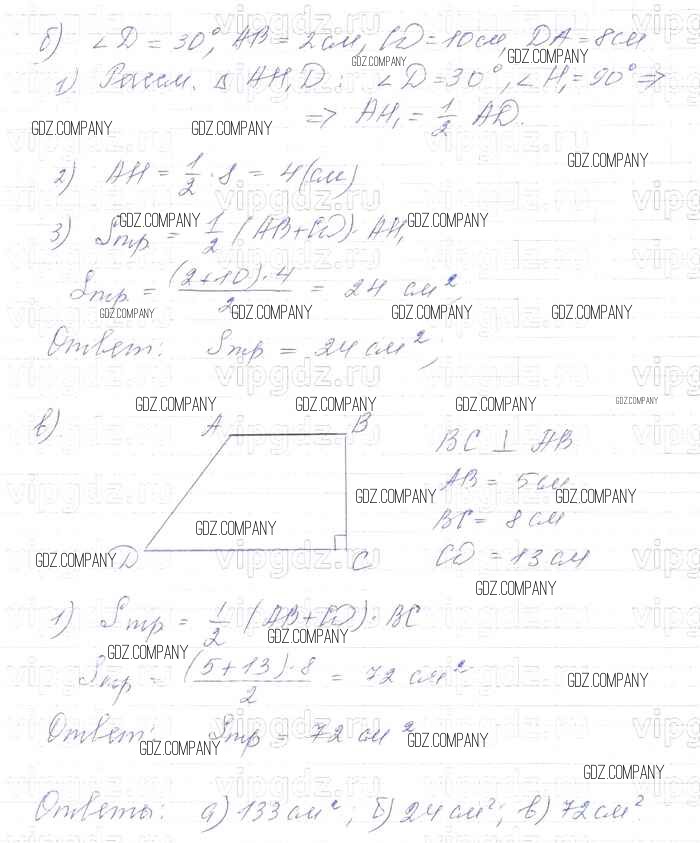 б) ∠D = 30°, AB = 2 см, CD = 10 см, DA = 8 см
1) Рассм. △ AH₁D : ∠D = 30°, ∠H₁ = 90° =>
=> AH₁ = 1/2 AD.
2) AH = 1/2 · 8 = 4 (см)
3) Sтр = 1/2 (AB+CD) · AH₁
Sтр. = (2+10)·4/2 = 24 см²
Ответ: Sтр = 24 см²;
в).
A B
D C
BC ⊥ AB
AB = 5 см
BC = 8 см
CD = 13 см
1) Sтр = 1/2 (AB+CD) · BC
Sтр = (5+13)·8/2 = 72 см²
Ответ: Sтр = 72 см²
Ответы: а) 133 см²; б) 24 см²; в) 72 см².
GDZ.COMPANY
vipgdz.ru